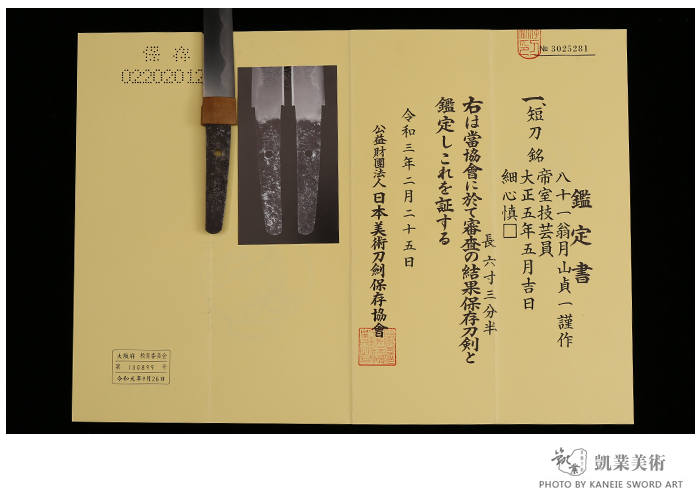 鑑定書
№ 3025281
一、短刀 銘
八十一翁月山貞一謹作
帝室技芸員
大正五年五月吉日
細心慎□
長 六寸三分半
右は當協會に於て審査の結果保存刀剣と
鑑定しこれを証する
令和三年二月二十五日
公益財團法人日本美術刀劍保存協會
保存
02202012
大阪府 教育委員会
第 130899 号
令和元年9月26日
凱業美術
PHOTO BY KANEIE SWORD ART